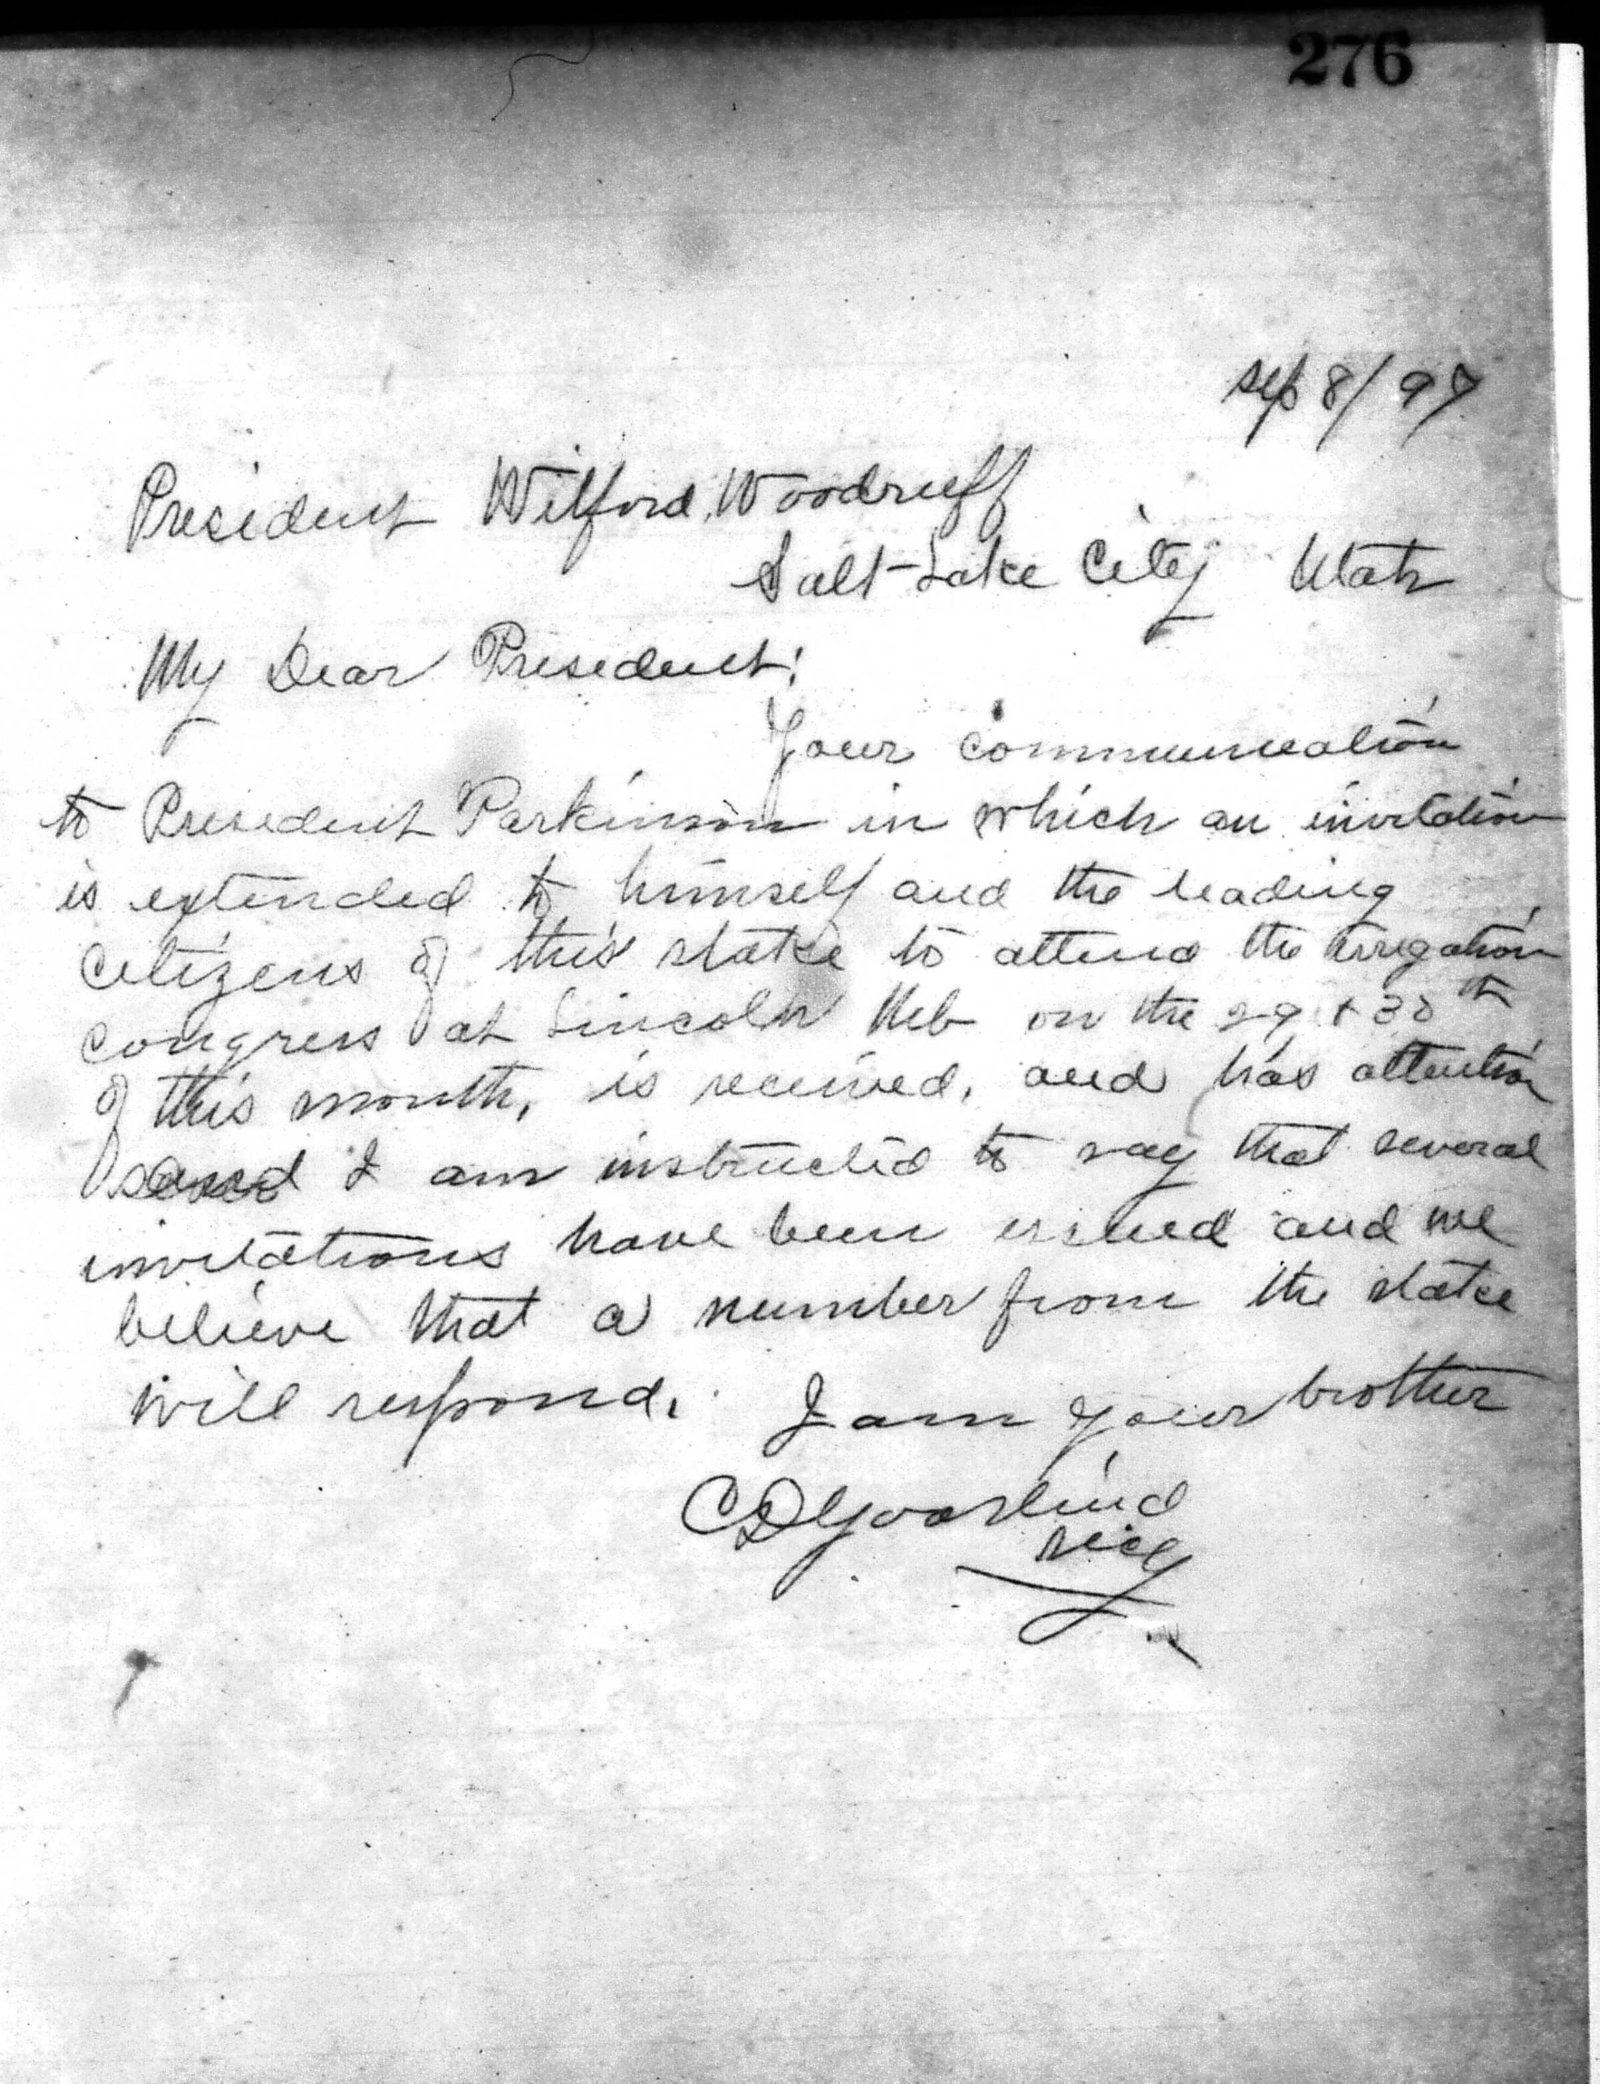 276
Sep 8/97
President Wilford Woodruff
Salt-Lake City Utah
My Dear President:
Your communication
to President Parkinson in which an invitation
is extended to himself and the leading
citizens of this stake to attend the irrigation
congress at Lincoln Neb on the 29 + 30th
of this month, is received, and has attention
and I am instructed to say that several
invitations have been issued and we
believe that a number from the stake
will respond. I am your brother
C D Goaslind
Secy